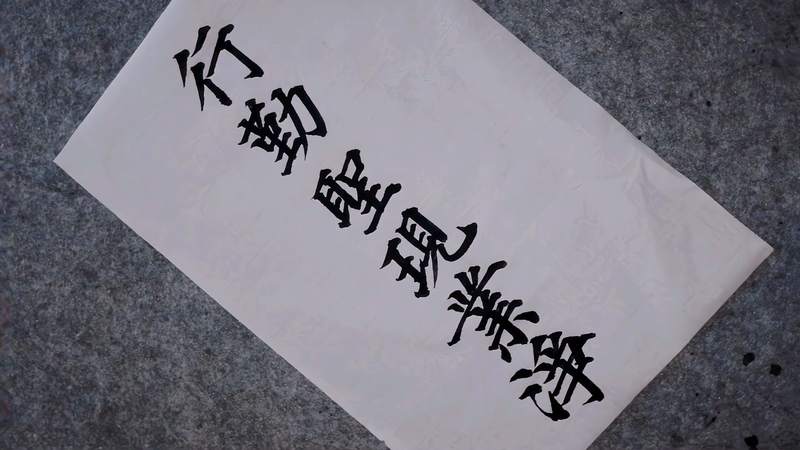 行勤聖現業淨